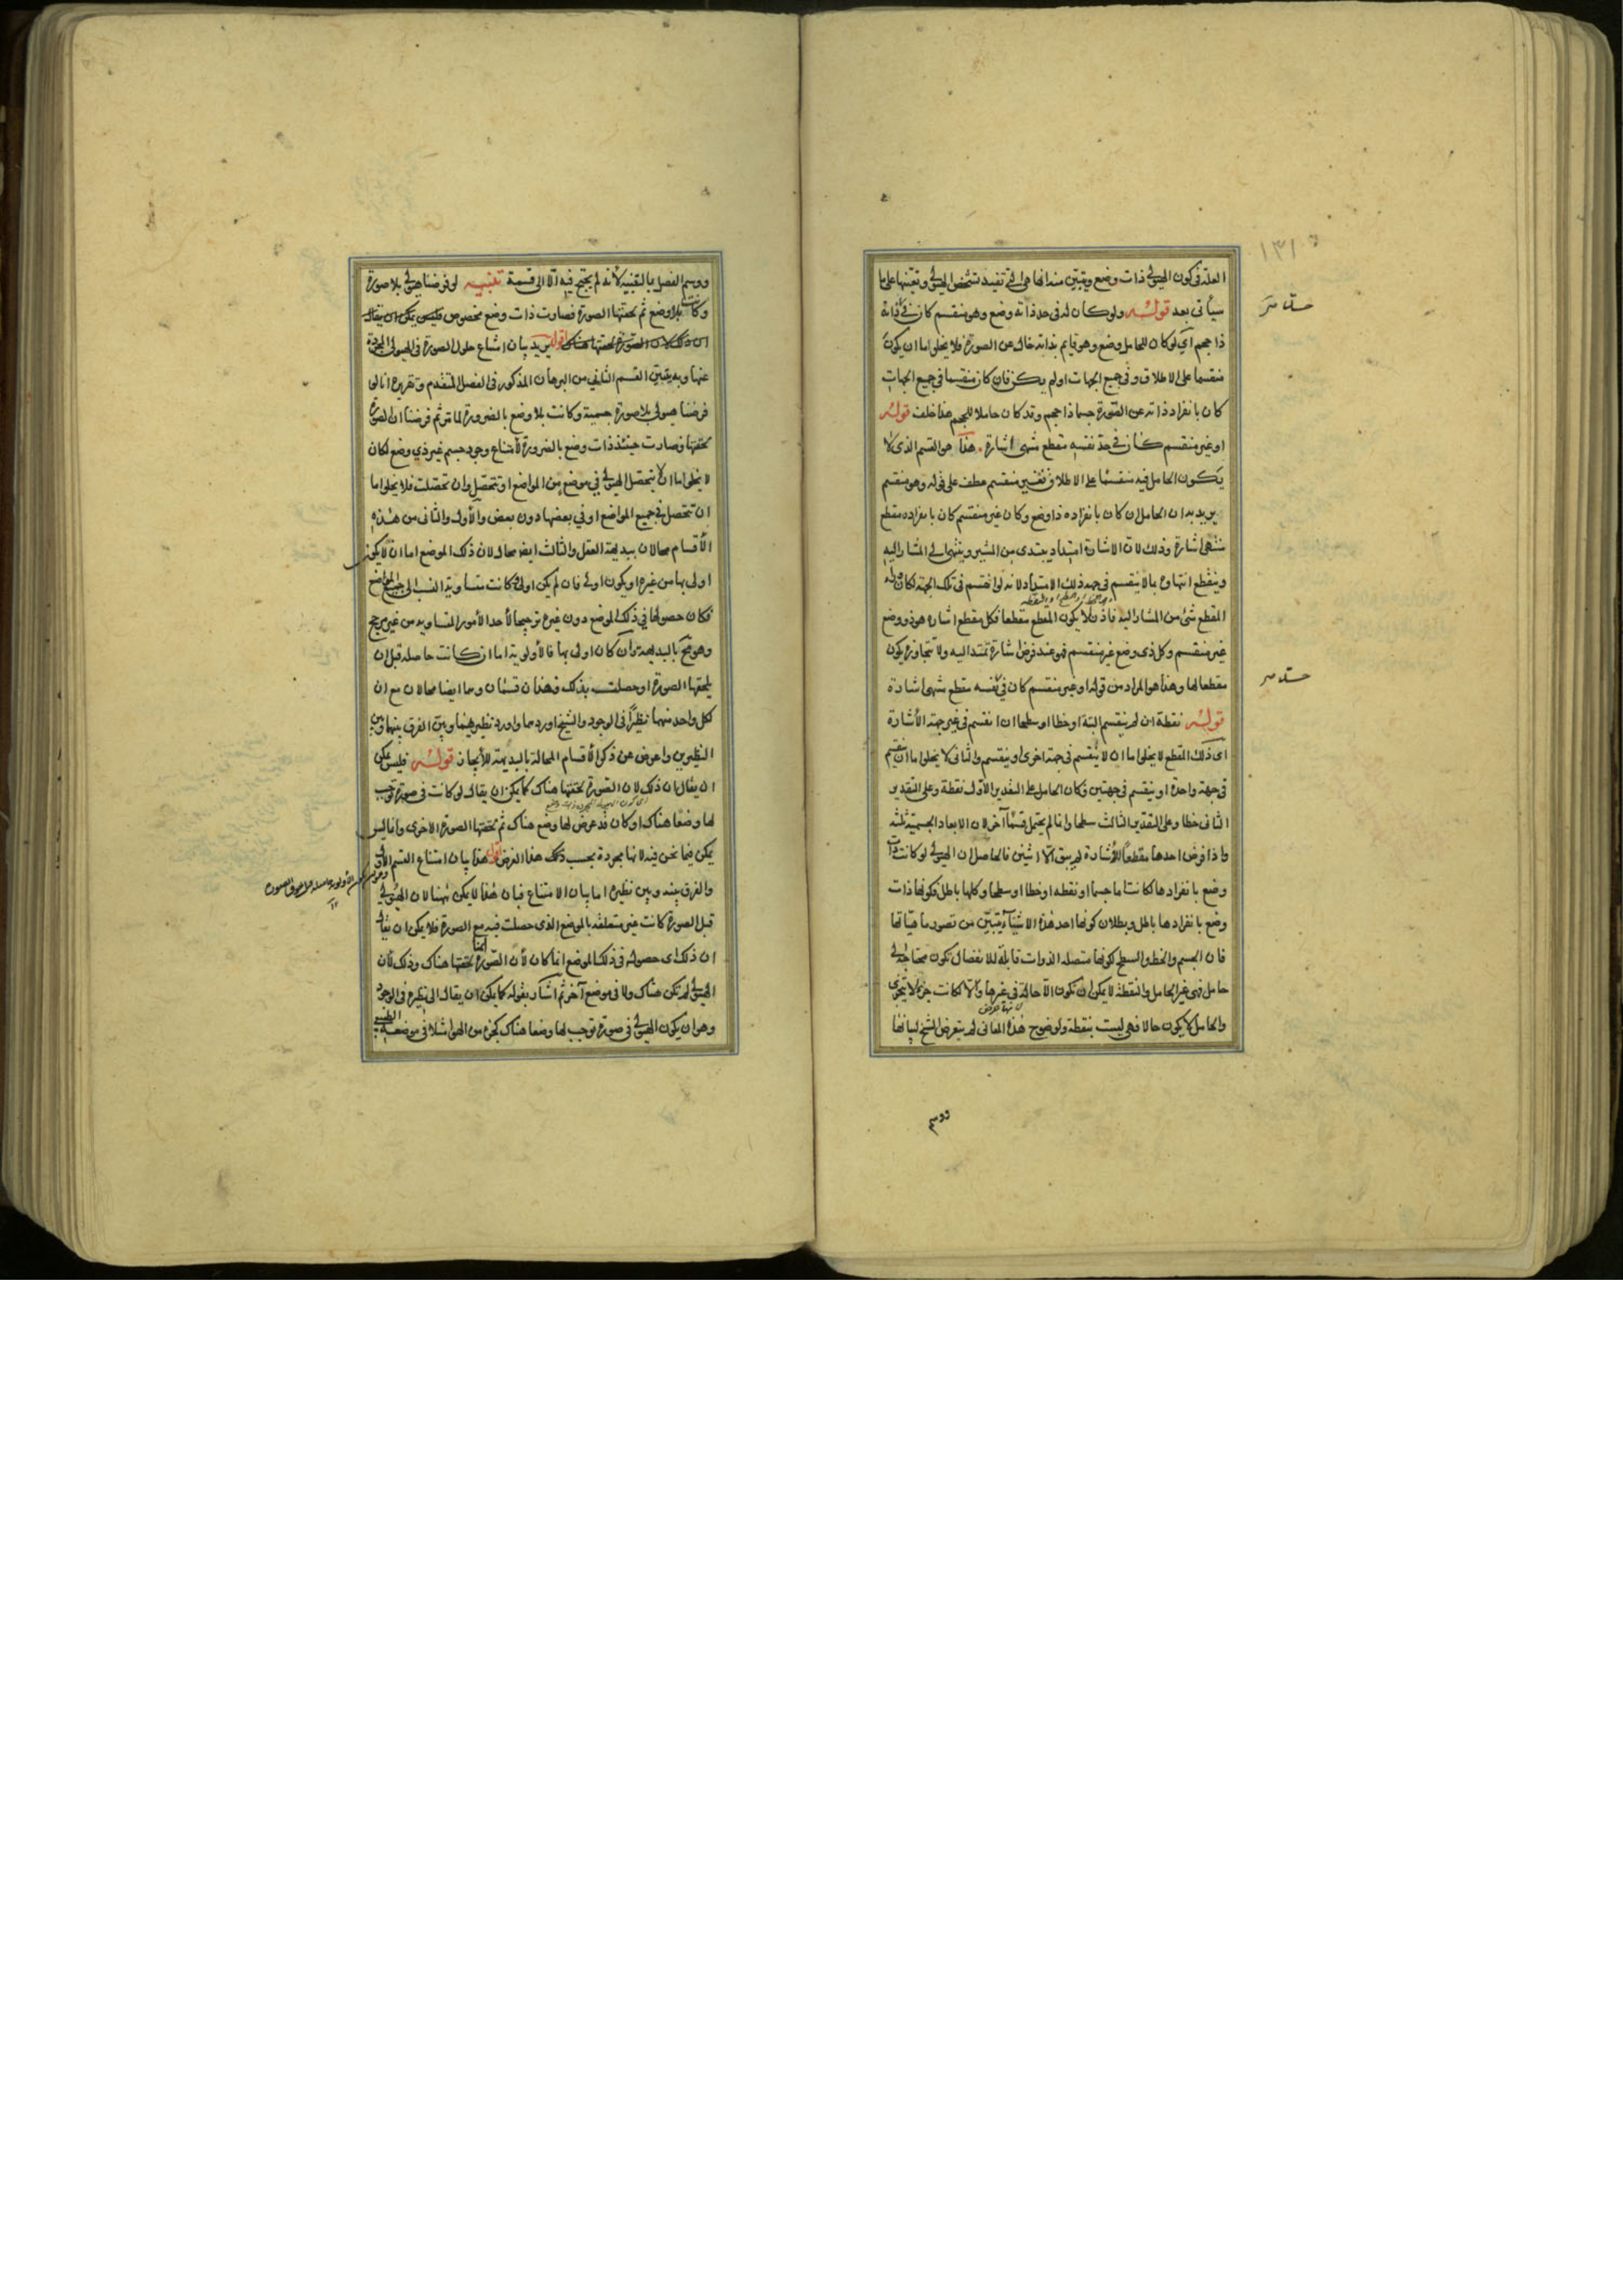 ١٣١
العلة فى كون الهيولى ذات وضع ويتبين منه انها هى التى تفيد تشخص الهيولى وتعينها على ما
سيأتى بعد قوله ولو كان له فى حد ذاته وضع وهو منقسم كان فى ذاته
ذا حجم اى لو كان للحامل وضع وهو قايم بذاته خال عن الصورة فلا يخلو اما ان يكون
منقسما على الاطلاق وفى جميع الجهات او لم يكن فان كان منقسما فى جميع الجهات
كان بانفراد ذاته عن الصورة جسما ذا حجم وقد كان حاملا للحجم هذا خلف قوله
او غير منقسم كان فى حد نفسه مقطع منتهى اشارة هذا هو القسم الذى لا
يكون الحامل فيه منقسما على الاطلاق فغير منقسم عطف على قوله وهو منقسم
يريد به ان الحامل ان كان بانفراده ذا وضع وكان غير منقسم كان بانفراده مقطع
منتهى اشارة وذلك لان الاشارة امتداد يبتدى من المشير وينتهى الى المشار اليه
وينقطع انتهاؤه بما لا ينقسم فى جهة ذلك الامتداد لانه لو انقسم فى تلك الجهة لكان وراء
المقطع شئ من المشار اليه فاذن لا يكون المقطع مقطعا فكل مقطع اشارة هو ذو وضع
غير منقسم وكل ذى وضع غير منقسم فهو عند فرض اشارة تمتد اليه ولا تتجاوزه يكون
مقطعا لها وهذا هو المراد من قوله او غير منقسم كان فى نفسه مقطع منتهى اشارة
قوله نقطة ان لم ينقسم البتة او خطا او سطحا ان انقسم فى غير جهة الاشارة
اى ذلك المقطع لا يخلو اما ان لا ينقسم فى جهة اخرى او ينقسم والثانى لا يخلو اما ان ينقسم
فى جهة واحدة او ينقسم فى جهتين فكان الحامل على التقدير الاول نقطة وعلى التقدير
الثانى خطا وعلى التقدير الثالث سطحا وانما لم يحتمل قسما آخر لان الابعاد الجسمية ثلثه
واذا فرض احدها مقطعا للاشارة لم يبق الا اثنين فالحاصل ان الهيولى لو كانت ذات
وضع بانفرادها لكانت اما جسما او نقطه او خطا او سطحا وكلها باطل فكونها ذات
وضع بانفرادها باطل وبطلان كونها احد هذه الاشياء يتبين من تصور ماهياتها
فان الجسم والخط والسطح لكونها متصلة الذوات قابلة للانفصال تكون محتاجة الى
حامل فهى غير الحامل والنقطة لا يمكن ان تكون الا حالة فى غيرها والا لكانت جزءا لا يتجزى
والحامل لا يكون حالا فهى ليست بنقطة ولوضوح هذه المعانى لم يتعرض الشيخ لبيانها
ووسم الفصل بالتنبيه لانه لم يحتج فيه الا الى قسمة تنبيه لو فرضنا هيولى بلا صورة
وكانت بلا وضع ثم لحقتها الصورة فصارت ذات وضع مخصوص فليس يمكن ان يقال
ان ذلك لان الصورة لحقتها هناك اقول يريد بيان امتناع حلول الصورة فى الهيولى المجردة
عنها وبه يتبين القسم الثانى من البرهان المذكور فى الفصل المتقدم وتقريره انا لو
فرضنا هيولى بلا صورة جسمية وكانت بلا وضع بالضرورة لما مر ثم فرضنا ان الصورة
لحقتها فصارت حينئذ ذات وضع بالضرورة لامتناع وجود جسم غير ذى وضع لكان
لا يخلو اما ان لا يتحصل الهيولى فى موضع من المواضع او تتحصل وان تحصلت فلا يخلو اما
ان تتحصل فى جميع المواضع او فى بعضها دون بعض والاول والثانى من هذه
الاقسام محالان ببديهة العقل والثالث ايضا محال لان ذلك الموضع اما ان لا يكون
اولى بها من غيره او يكون اولى فان لم يكن اولى كانت متساوية النسب الى جميع المواضع
فكان حصولها فى ذلك الموضع دون غيره ترجيحا لاحد الامور المتساوية من غير مرجح
وهو مح بالبديهة وان كان اولى بها فالاولوية اما ان كانت حاصلة قبل ان
يلحقها الصورة او حصلت بذلك فهذان قسمان وهما ايضا محالان مع ان
لكل واحد منهما نظيرا فى الوجود والشيخ اوردهما واورد نظيريهما وبين الفرق بينهما وبين
النظيرين واعرض عن ذكر الاقسام المحالة بالبديهة للايجاز قوله فليس يمكن
ان يقال ان ذلك لان الصورة لحقتها هناك كما يمكن ان يقال لو كانت فى صورة توجب
لها وضعا هناك او كان قد عرض لها وضع هناك ثم لحقتها الصورة الاخرى وانما ليس
يمكن فيما نحن فيه لانها مجردة بحسب ذلك هذا الفرض اقول هذا بيان امتناع القسم الاول
والفرق بينه وبين نظيره اما بيان الامتناع فبان هذا لا يمكن ههنا لان الهيولى
قبل الصورة كانت غير متعلقة بالموضع الذى حصلت فيه مع الصورة فلا يمكن ان يقال
ان ذلك اى حصوله فى ذلك الموضع انما كان لان الصورة انما لحقتها هناك وذلك لان
الهيولى لم تكن هناك ولا فى موضع آخر ثم اشار بقوله كما يمكن ان يقال الى نظيره فى الوجود
وهو ان يكون الهيولى فى صورة توجب لها وضعا هناك كجزء من الهوا مثلا فى موضعه الطبيعى